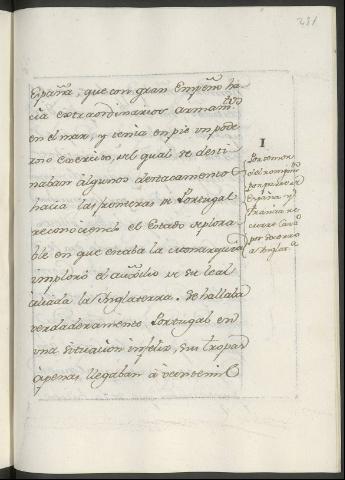 281
España, que con gran Empeño ha
cia extraordinarios armam.tos
en el mar, y tenia en pie un pode
roso exercito, del qual se desti
naban algunos destacamentos
hacia las fronteras de Portugal
reconociendo el Estado deplora
ble en que estaba la Monarquia
imploró el auxilio de su leal
aliada la Inglaterra. Se hallaba
verdaderamente Portugal en
una situacion infeliz, sus tropas
apenas llegaban à veinte mil
I
Por temor
del rompim.to
por parte de
España y
Francia re
curre
por socorro
a Inglat.a